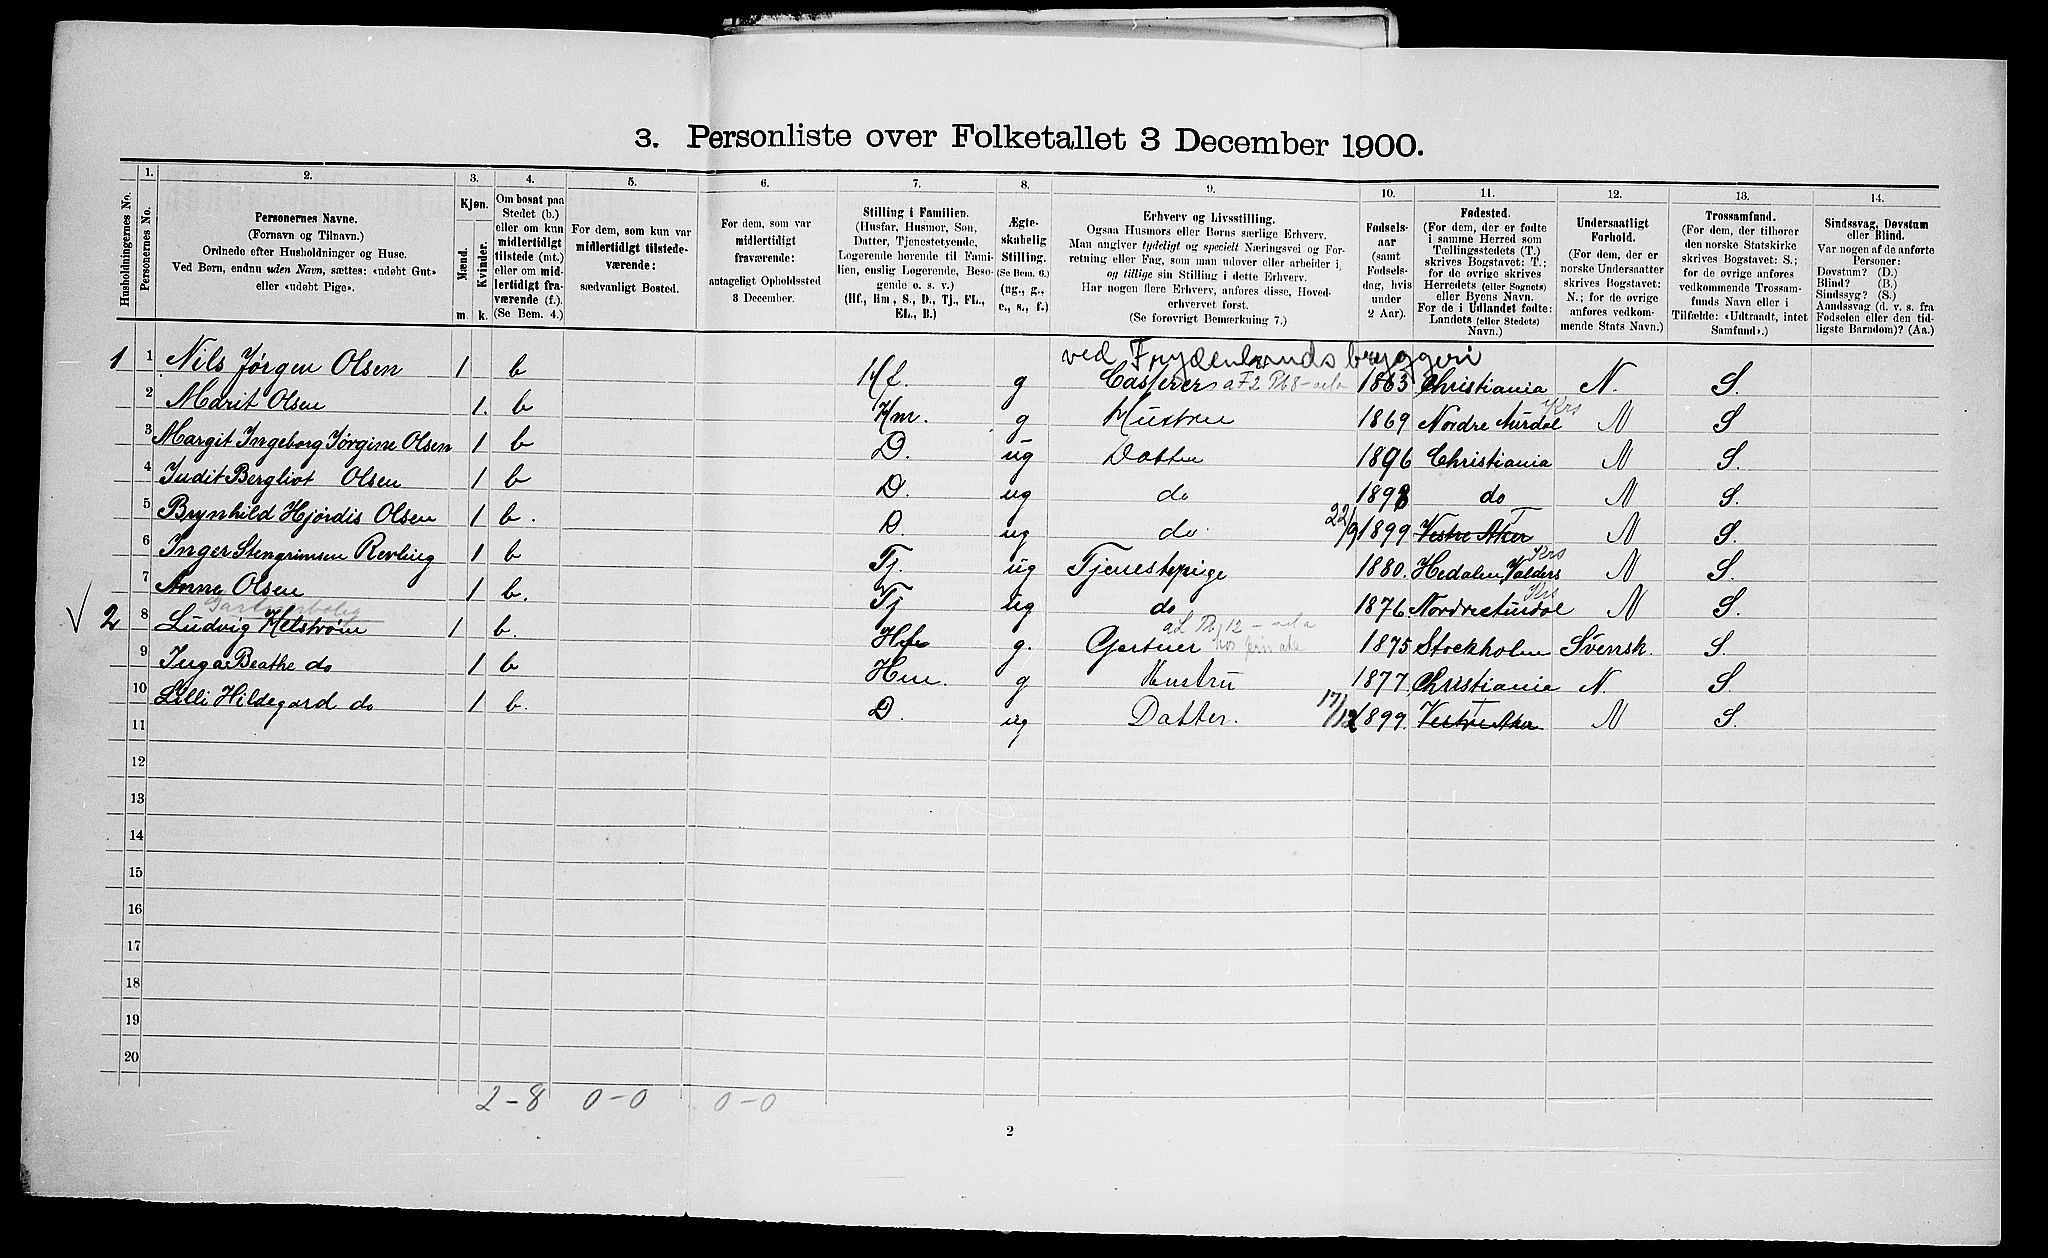 3. Personliste over Folketallet 3 December 1900.
1. 2. 3. 4. 5. 6. 7. 8. 9. 10. 11. 12. 13. 14.
Husholdningernes No.
Personernes No.
Personernes Navne.
(Fornavn og Tilnavn.)
Ordnede efter Husholdninger og Huse.
Ved Børn, endnu uden Navn, sættes: «udøbt Gut»
eller «udøbt Pige».
Kjøn.
Mænd. Kvinder.
m. k.
Om bosat paa
Stedet (b.)
eller om kun
midlertidigt
tilstede (mt.)
eller om mid-
lertidigt fra-
værende (f.).
(Se Bem. 4.)
For dem, som kun var
midlertidigt tilstede-
værende:
sædvanligt Bosted.
For dem, som var
midlertidigt
fraværende:
antageligt Opholdssted
3 December.
Stilling i Familien.
(Husfar, Husmor, Søn,
Datter, Tjenestetyende,
Logerende hørende til Fami-
lien, enslig Logerende, Besø-
gende o. s. v.)
(Hf., Hm., S., D., Tj., FL.,
EL., B.)
Ægte-
skabelig
Stilling.
(Se Bem. 6.)
(ug., g.,
e., s., f.)
Erhverv og Livsstilling.
Ogsaa Husmors eller Børns særlige Erhverv.
Man angiver tydeligt og specielt Næringsvei og For-
retning eller Fag, som man udover eller arbeider i,
og tillige sin Stilling i dette Erhverv.
Har nogen flere Erhverv, anføres disse, Hoved-
erhvervet først.
(Se forøvrigt Bemærkning 7.)
Fødsels-
aar
(samt
Fødsels-
dag, hvis
under
2 Aar).
Fødested.
(For dem, der er fødte
i samme Herred som
Tællingsstedets (T.)
skrives Bogstavet: T.;
for de øvrige skrives
Herredets (eller Sognets)
eller Byens Navn.
For de i Udlandet fødte:
Landets (eller Stedets)
Navn.)
Undersaatligt
Forhold.
(For dem, der er
norske Undersaatter
skrives Bogstavet:
N.; for de øvrige
anføres vedkom-
mende Stats Navn.)
Trossamfund.
(For dem, der tilhører
den norske Statskirke
skrives Bogstavet: S.;
for de øvrige anføres
vedkommende Trossam-
funds Navn eller i
Tilfælde: «Udtraadt, intet
Samfund».)
Sindssvag, Døvstum
eller Blind.
Var nogen af de anførte
Personer:
Døvstum? (D.)
Blind? (B.)
Sindssyg? (S.)
Aandssvag (d. v. s. fra
Fødselen eller den tid-
ligste Barndom)? (Aa.)
ved Frydenlunds bryggeri
1 1 Nils Jørgen Olsen 1 b Hf. g Casserer 1863 Christiania N. S.
2 Marit Olsen 1. b Hm. g Hustru 1869 Nordre Aurdal Krs N S
3 Margit Ingeborg Jørgine Olsen 1 b D. ug Datter 1896 Christiania N S.
4 Judit Bergliot Olsen 1 b D. ug do 1898 do N S.
5 Brynhild Hjørdis Olsen 1 b. D. ug do. 22/9 1899 Vestre Aker T N S.
6 Inger Stengrimsen 1 b Tj. ug Tjenestepige 1880. Hedalen, Valders Krs N S.
7 Anne Olsen 1 b. Tj ug do 1876 Nordre Aurdal Krs N S.
Gartnerbolig
√ 2 8 Ludvig Helstrøm 1 b. Hf g. Gartner 1875 Stockholm Svensk. S.
9 Inga Beathe do 1 b Hm. g Hustru 1877 Christiania N. S
10 Lilli Hildegard do 1 b. D. ug Datter. 17/12 1899. Vestre Aker T N S.
11
12
13
14
15
16
17
18
19
20
2-8 0-0 0-0
2